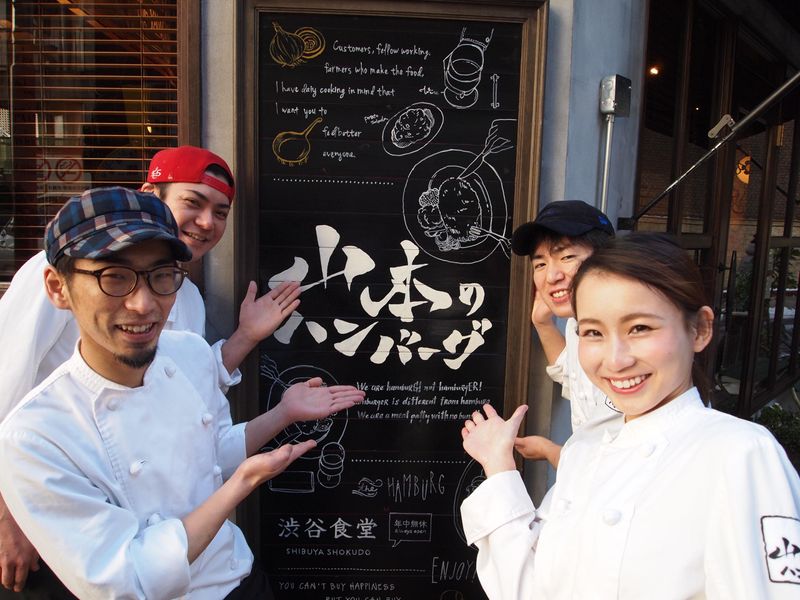 Customers, fellow working.
farmers who make the food,
I have daily cooking in mind that
I want you to
feel better
everyone.
山本の
ハンバーグ
We are hamburGH not hamburgER!
hamburger is different from hamburg
We are a meat patty with no bun
The HAMBURG
渋谷食堂
年中無休
always open
SHIBUYA SHOKUDO
ENJOY!
YOU CAN'T BUY HAPPINESS
BUT YOU CAN BUY
山本
ハン